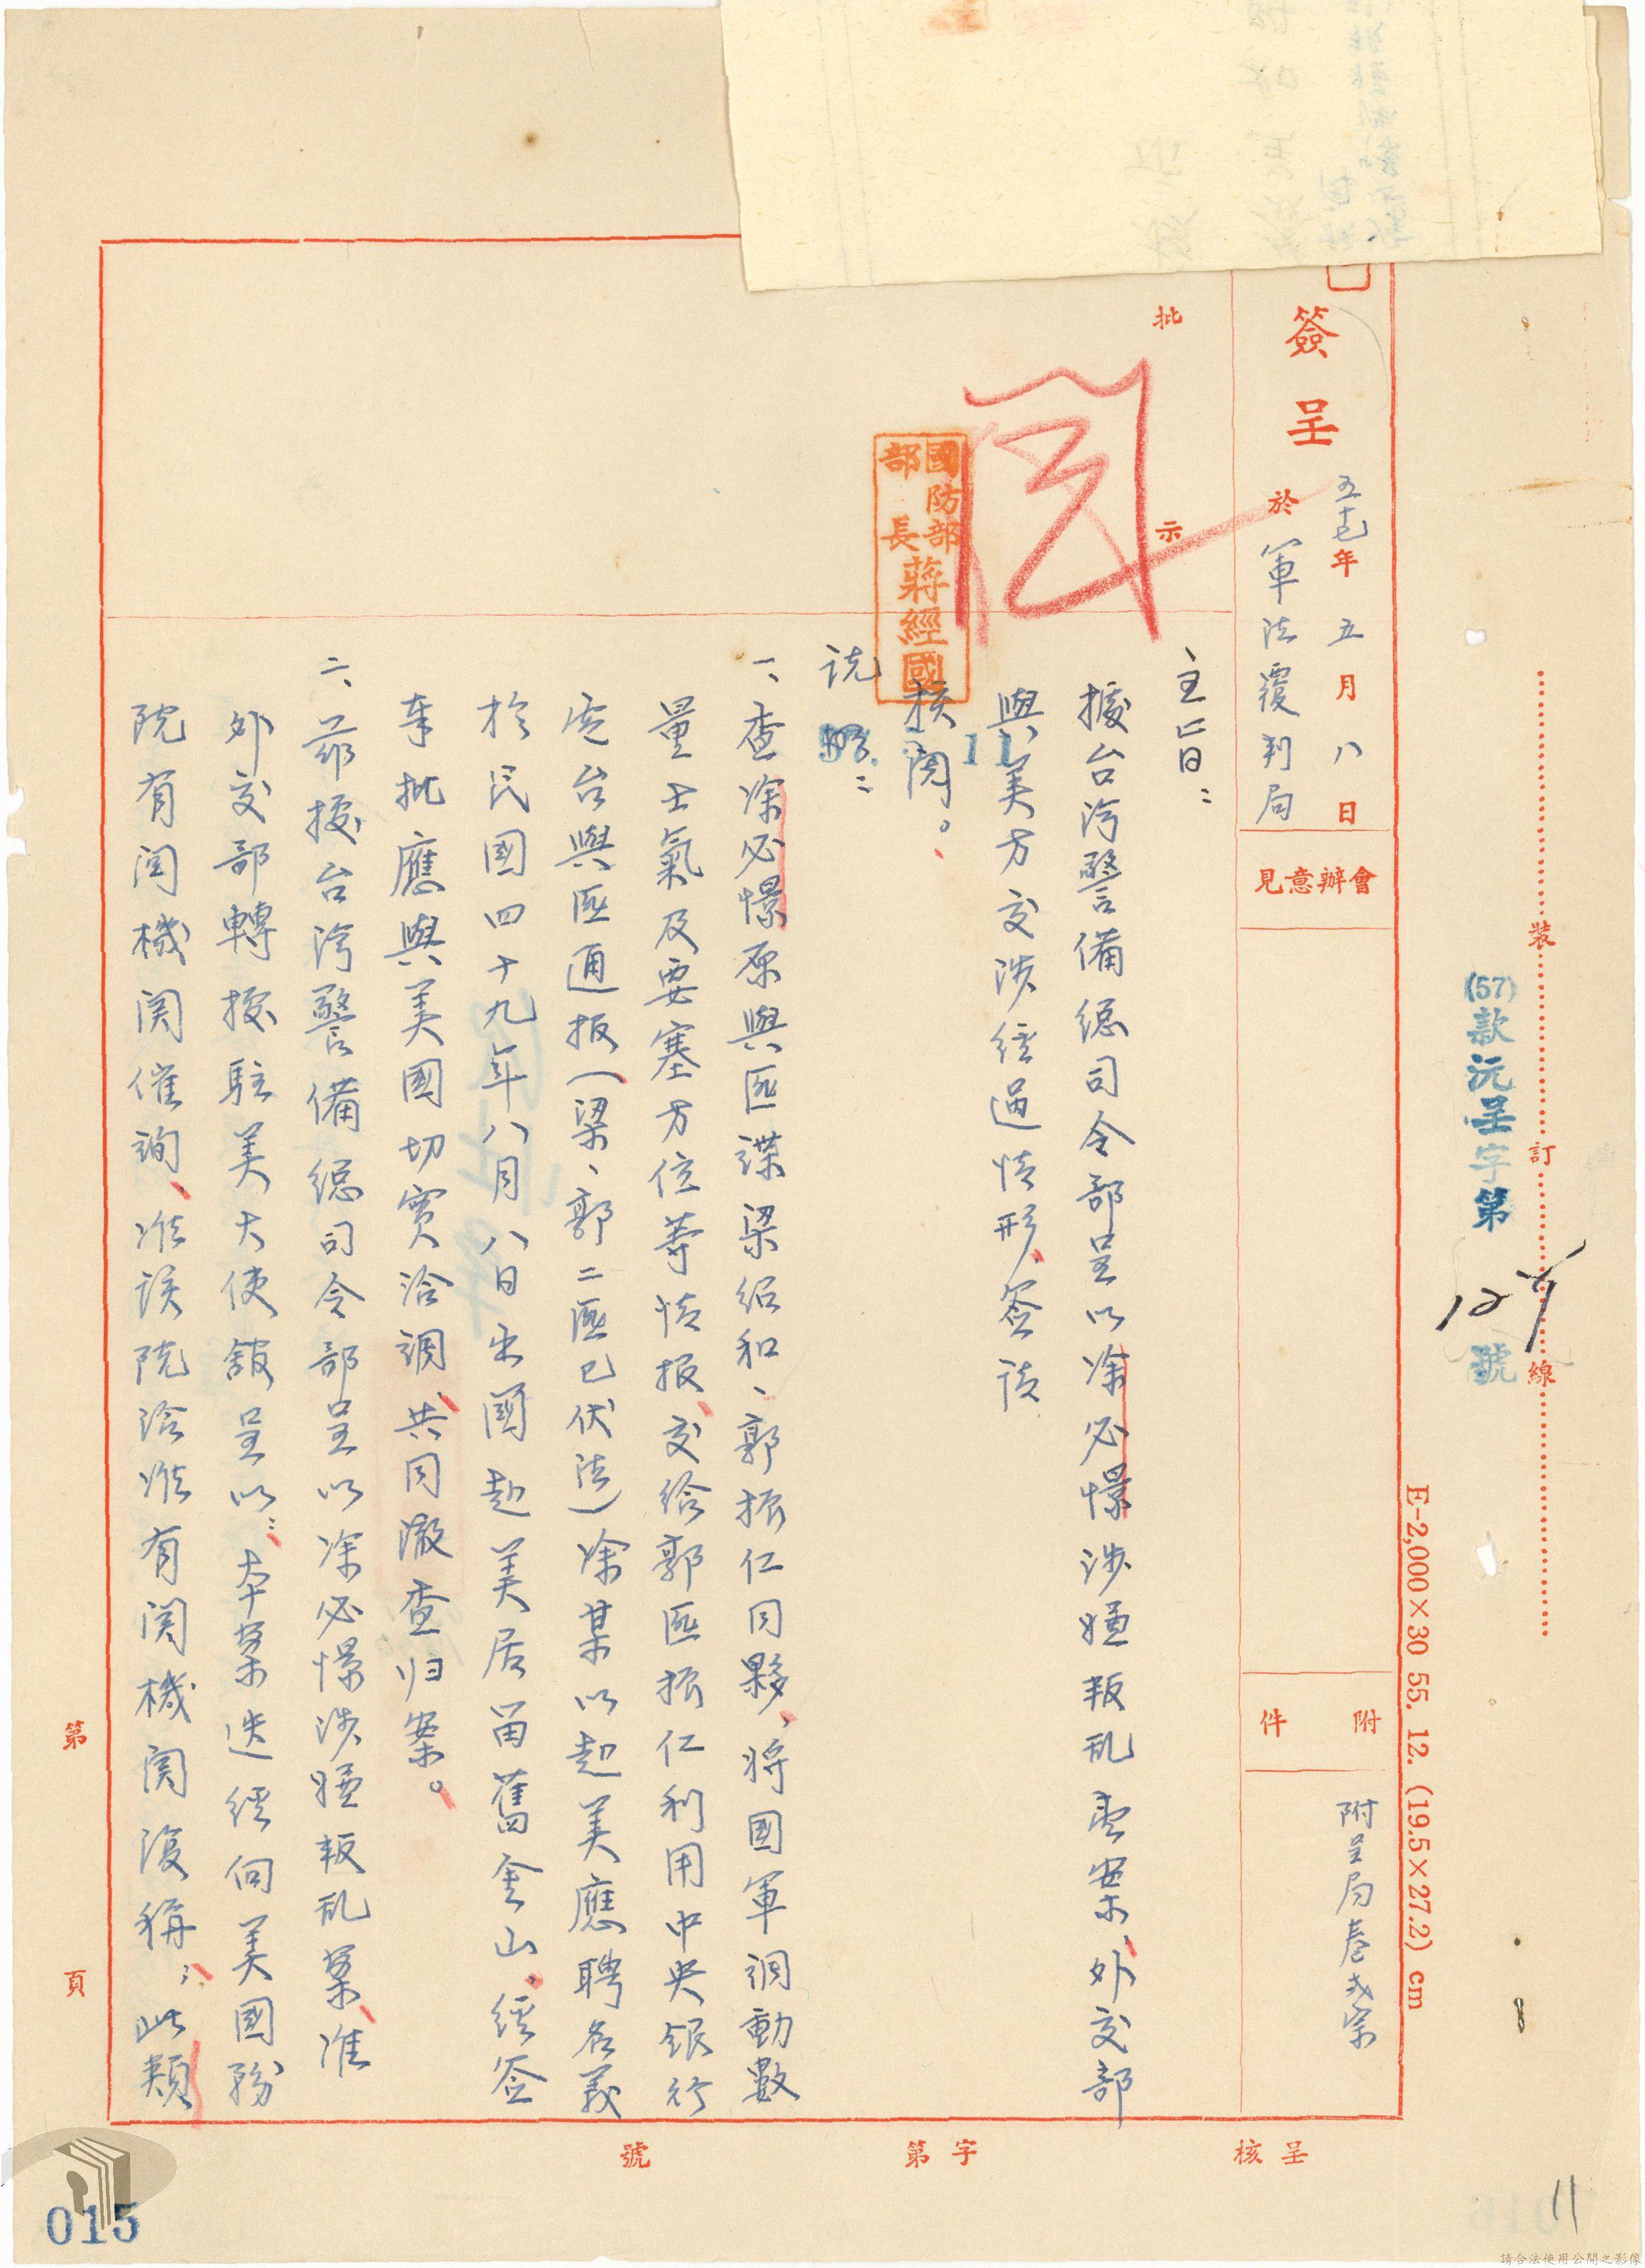 簽呈
五十七年五月八日
於軍法覆判局
會辦意見
附件
附呈局卷弍宗
批示
國防部
部長
蔣經國
主旨：
據台湾警備總司令部呈以涂必憬涉嫌叛乱乙案、外交部
與美方交涉経過情形、签请
核閱。
说明：
一、查涂必憬原與匪諜梁紹和、郭振仁同夥、将國軍調動數
量士氣及要塞方位等情报、交给郭匪振仁利用中央銀行
電台與匪通报（梁、郭二匪已伏法）涂某以赴美應聘名義
於民国四十九年八月八日出國赴美居留舊金山、経签
奉批應與美國切实洽調、共同澈查归案。
二、茲據台湾警備總司令部呈以涂必憬涉嫌叛乱案、准
外交部轉據駐美大使館呈以：本案迭経向美國務
院有関機関催詢、准該院洽准有関機関復稱：此類
裝
訂
線
(57)款沅呈字第
號
E-2,000×30 55. 12. (19.5×27.2) cm
第
頁
呈核
字第
號
015
11
請合法使用公開之影像